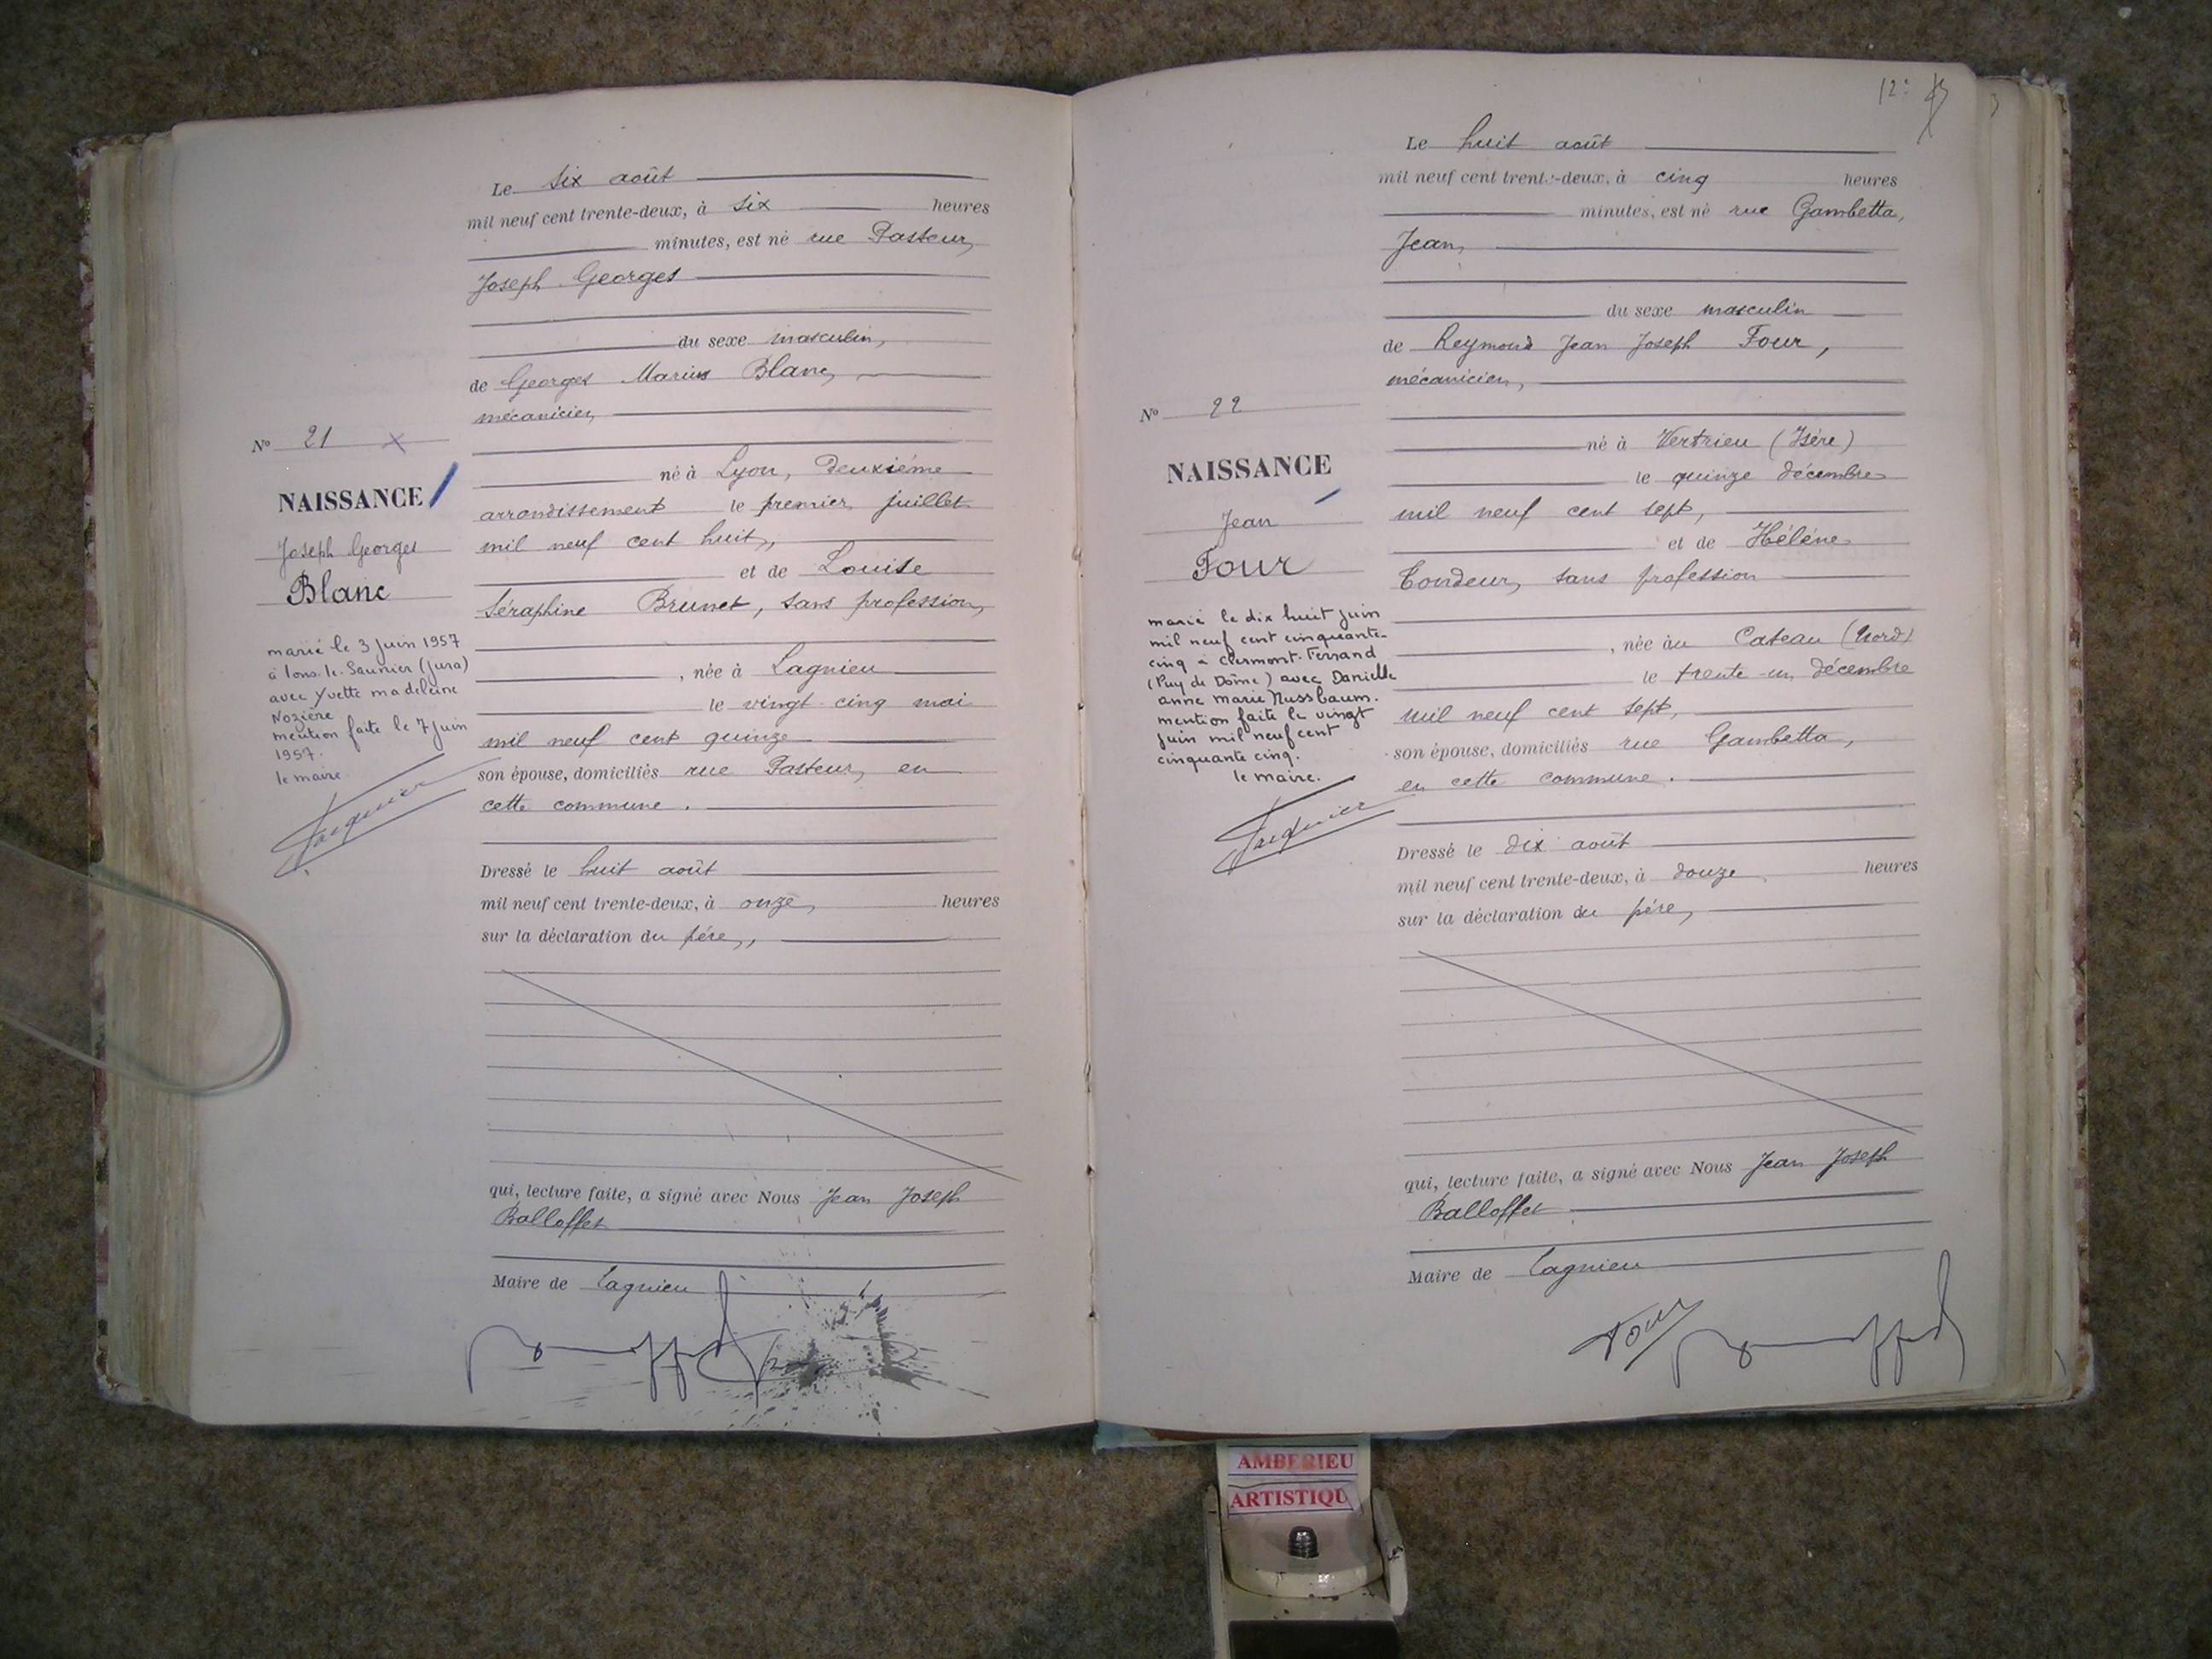 Le six août
mil neuf cent trente-deux, à six heures
minutes, est né rue Pasteur,
Joseph Georges
du sexe masculin,
de Georges Marius Blanc,
mécanicien,
né à Lyon, Deuxième
arrondissement le premier juillet
mil neuf cent huit,
et de Louise
Séraphine Brunet, sans profession,
, née à Lagnieu
le vingt cinq mai
mil neuf cent quinze
son épouse, domiciliés rue Pasteur, en
cette commune.
Dressé le huit août
mil neuf cent trente-deux, à onze, heures
sur la déclaration du père,
qui, lecture faite, a signé avec Nous Jean Joseph
Balloffet
Maire de Lagnieu
No 21 X
NAISSANCE
Joseph Georges
Blanc
marié le 3 juin 1957
à lons-le-Saunier (jura)
avec Yvette madeleine
Nozière
mention faite le 7 juin
1957.
le maire
12:
Le huit août
mil neuf cent trente-deux, à cinq heures
minutes, est né rue Gambetta,
Jean,
du sexe masculin
de Reymond Jean Joseph Four,
mécanicien,
né à Vertrieu (Isère)
le quinze décembre
mil neuf cent sept,
et de Hélène
Tondeur, sans profession
, née au Cateau (Nord)
le trente-un décembre
mil neuf cent sept,
son épouse, domiciliés rue Gambetta,
en cette commune.
Dressé le dix août
mil neuf cent trente-deux, à douze heures
sur la déclaration du père,
qui, lecture faite, a signé avec Nous Jean Joseph
Balloffet
Maire de Lagnieu
Four
No 22
NAISSANCE
Jean
Four
marié le dix huit juin
mil neuf cent cinquante-
cinq à Clermont-Ferrand
(Puy de Dôme) avec Danielle
anne marie Nussbaum.
mention faite le vingt
juin mil neuf cent
cinquante cinq.
le maire.
AMBERIEU
ARTISTIQU